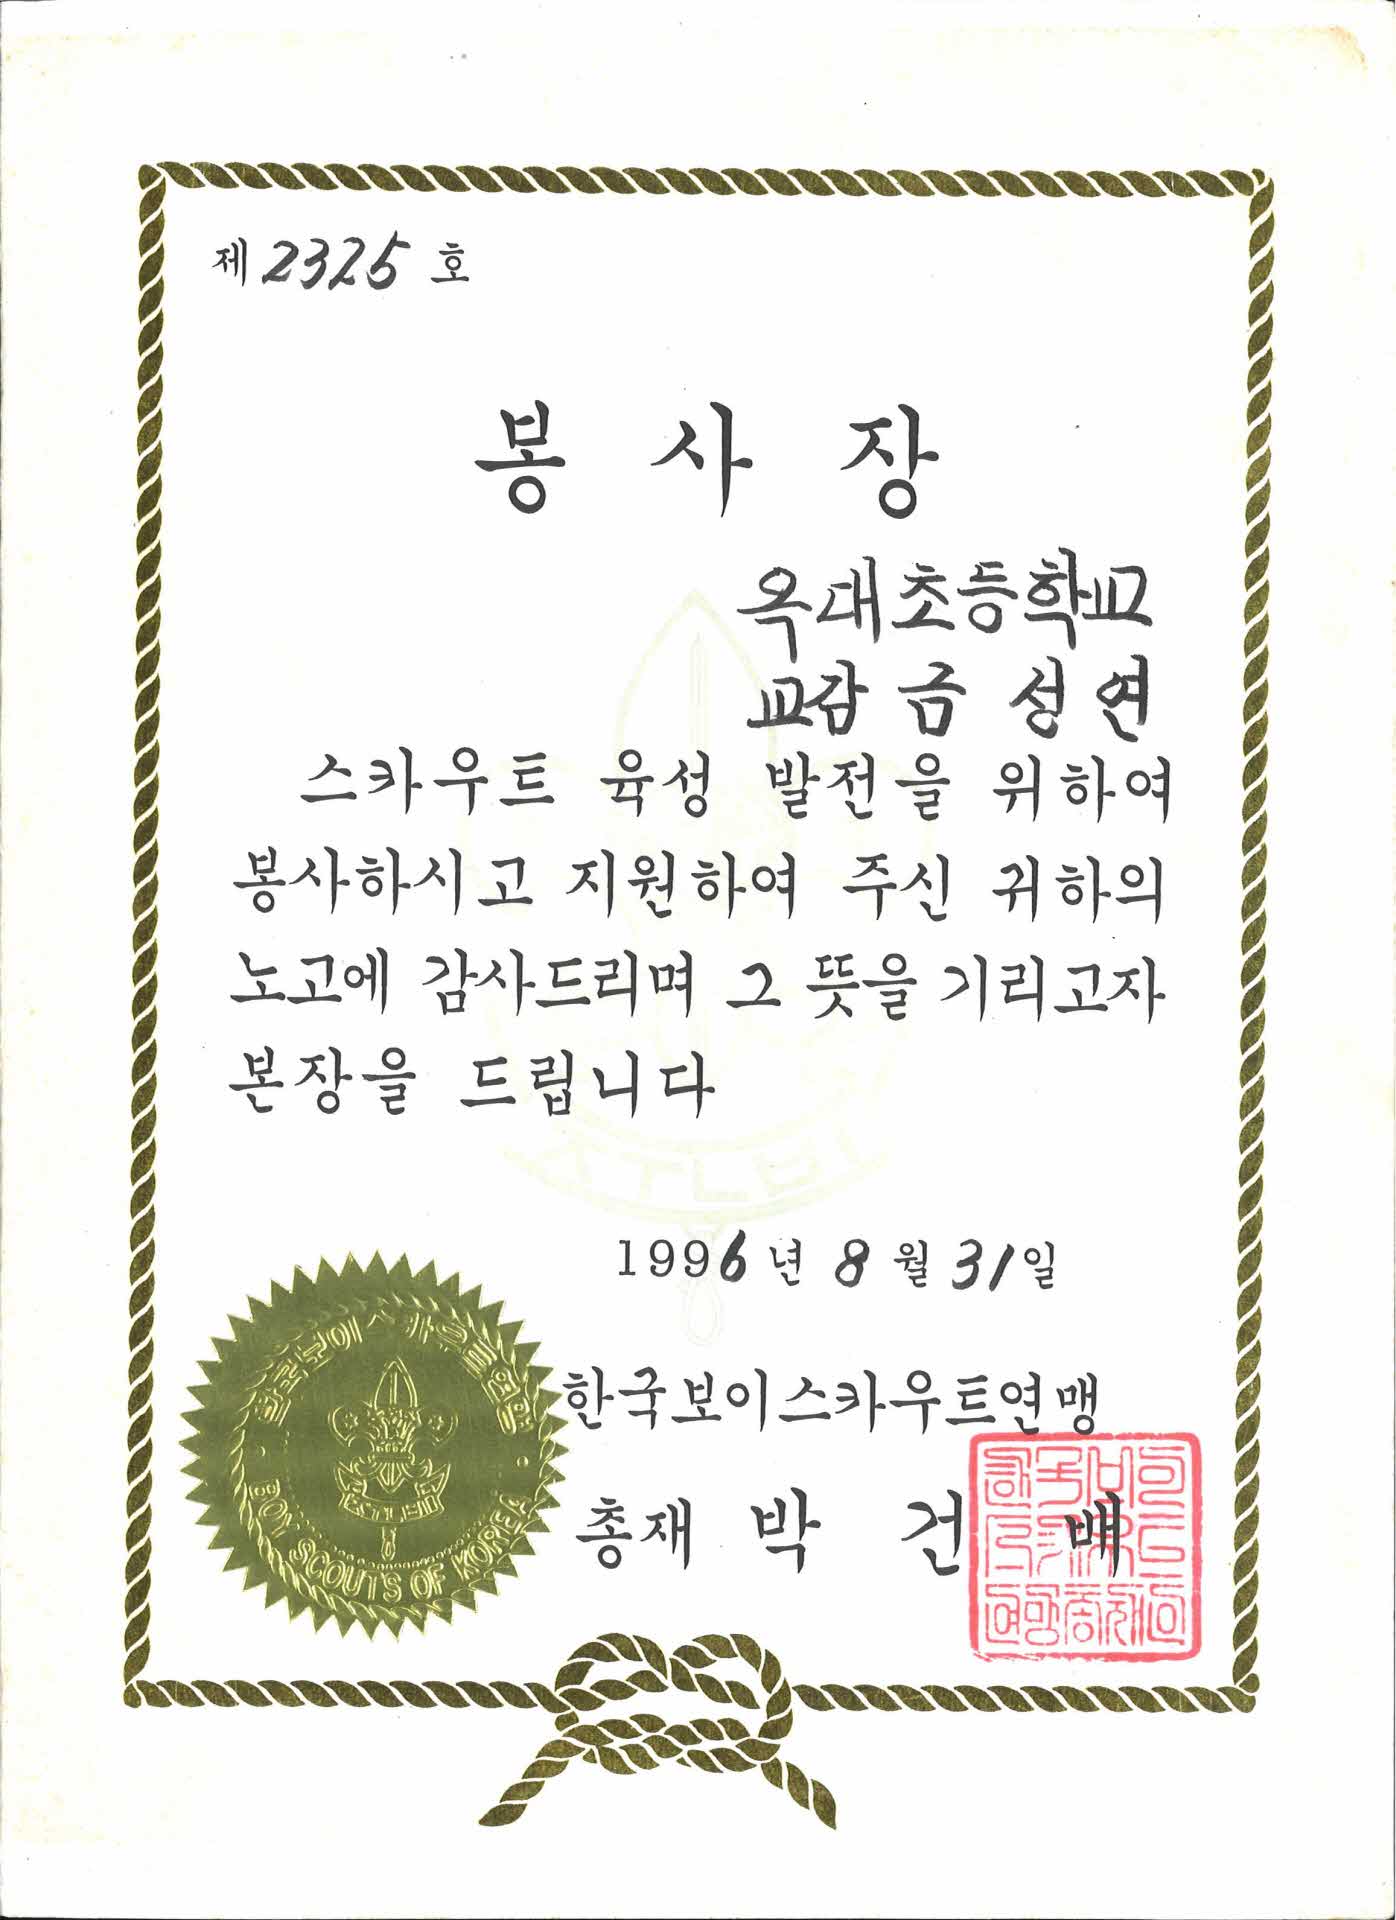 제 2325 호
봉 사 장
옥대초등학교
교감 금 성 연
스카우트 육성 발전을 위하여
봉사하시고 지원하여 주신 귀하의
노고에 감사드리며 그 뜻을 기리고자
본장을 드립니다
1996년 8월 31일
한국보이스카우트연맹
총재 박 건 배
한국보이스카우트연맹
BOY SCOUTS OF KOREA